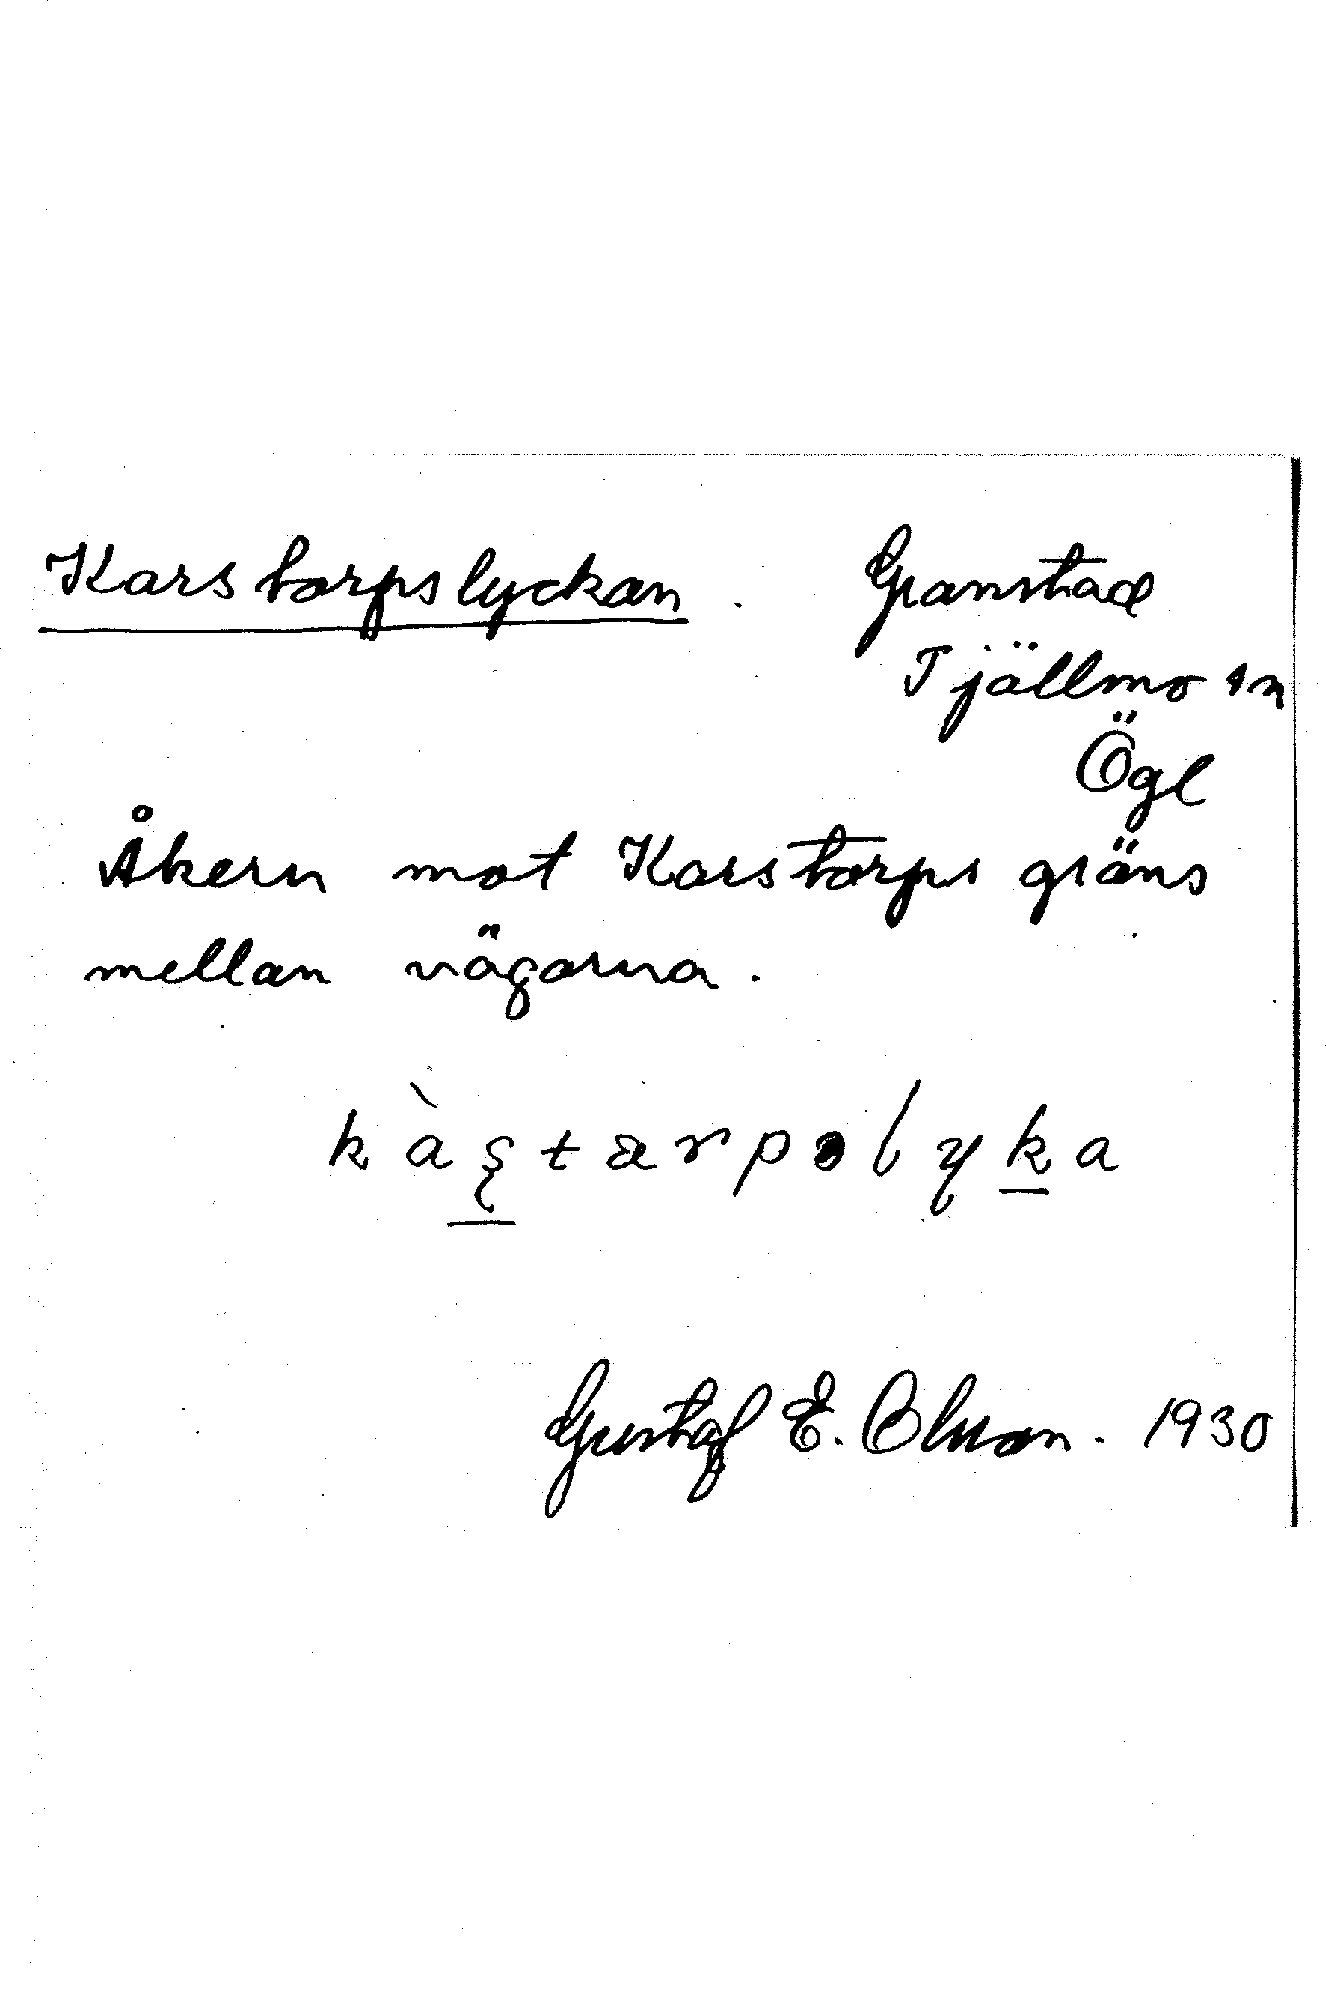 Karstorpslyckan. Granstad
Tjällmo sn
Ögl
Åkern mot Karstorps gräns
mellan vägarna.
kàştarpəlyka
Gustaf E. Olsson. 1930